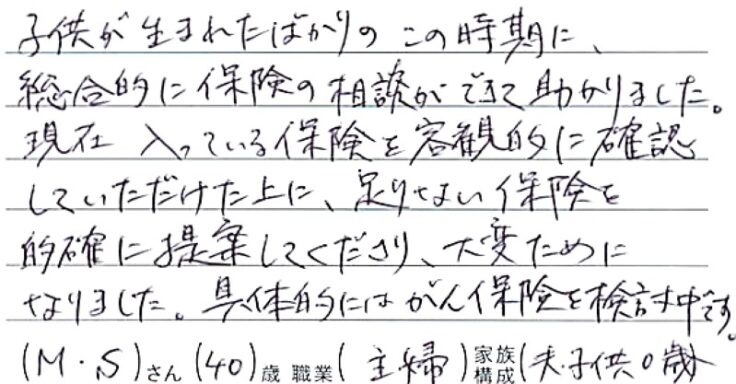 子供が生まれたばかりのこの時期に、
総合的に保険の相談ができて助かりました。
現在入っている保険を客観的に確認
していただけた上に、足りない保険を
的確に提案してくださり、大変ために
なりました。具体的にはがん保険を検討中です。
(M・S)さん(40)歳 職業(主婦)家族構成(夫・子供0歳